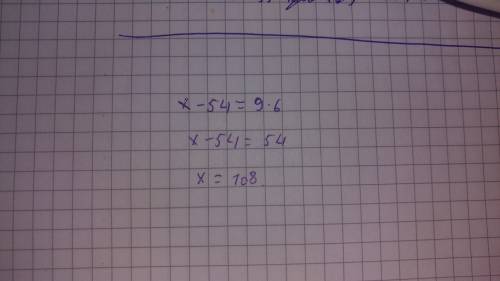 x - 54 = 9·6
x - 54 = 54
x = 108